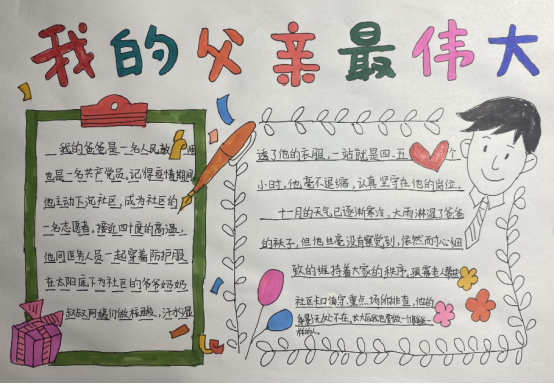 我的父亲最伟大
我的爸爸是一名人民教师
也是一名共产党员,记得疫情期间
他主动下沉社区,成为社区的
一名志愿者,接近四十度的高温,
他同医务人员一起穿着防护服
在太阳底下为社区的爷爷奶奶
叔叔阿姨们做核酸,汗水湿
透了他的衣服,一站就是四、五个
小时,他毫不退缩,认真坚守在他的岗位。
十一月的天气已逐渐寒冷,大雨淋湿了爸爸
的袜子,但他丝毫没有察觉到,依然耐心细
致的维持着大家的秩序,
社区卡口值守,重点场所排查,他的
身影无处不在,长大后我也要做一个像爸爸一
样的人。